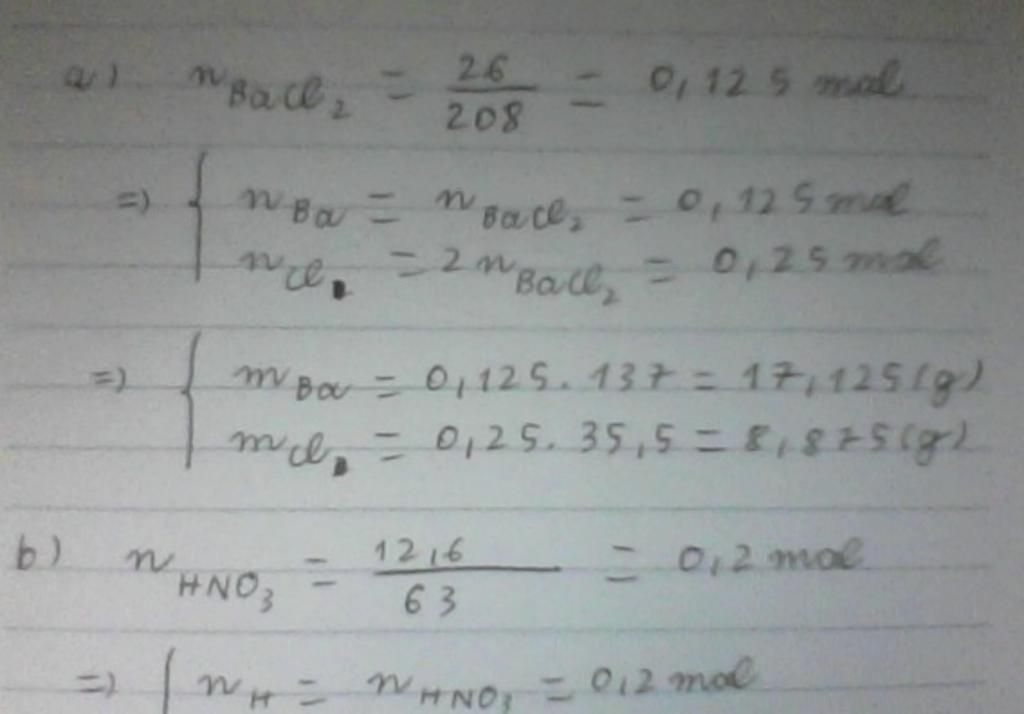 a) n BaCl₂ = 26/208 = 0,125 mol
=> { n Ba = n BaCl₂ = 0,125 mol
n Cl = 2 n BaCl₂ = 0,25 mol
=> { m Ba = 0,125 . 137 = 17,125 (g)
m Cl = 0,25 . 35,5 = 8,875 (g)
b) n HNO₃ = 12,6/63 = 0,2 mol
=> { n H = n HNO₃ = 0,2 mol